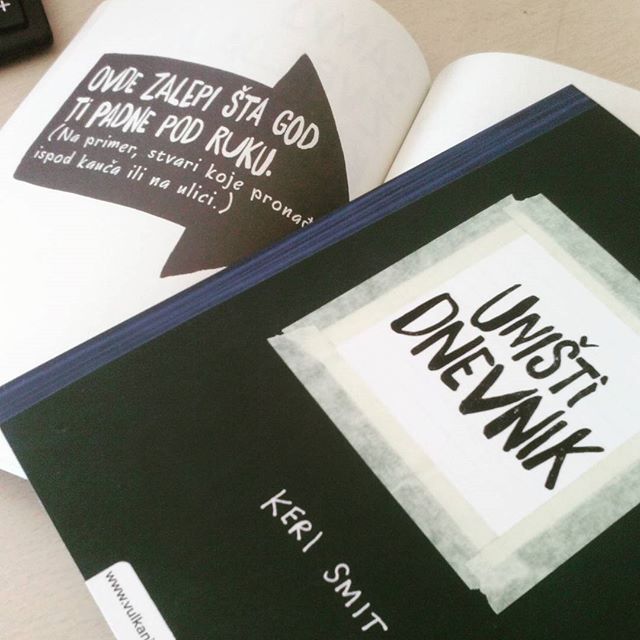 OVDE ZALEPI ŠTA GOD
TI PADNE POD RUKU.
(Na primer, stvari koje
ispod kauča ili na ulici.)
UNIŠTI
DNEVNIK
KERI SMIT